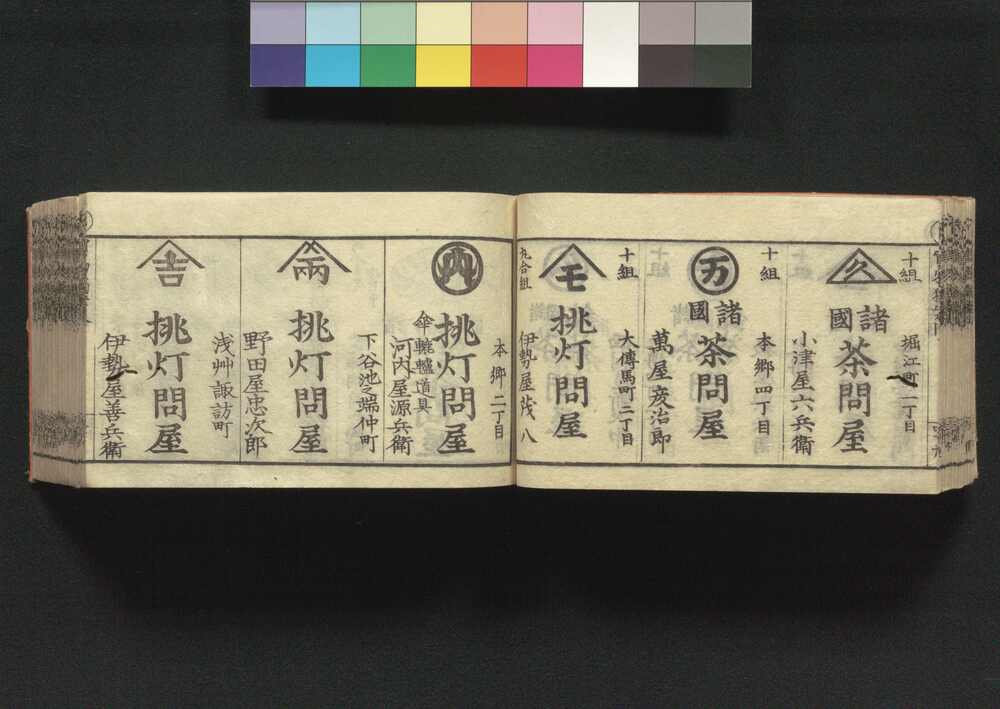 久
十組
堀江町一丁目
諸國
茶問屋
小津屋六兵衛
万
十組
本郷四丁目
諸國
茶問屋
萬屋疲治郎
モ
十組
大傳馬町二丁目
挑灯問屋
伊勢屋茂八
九合組
本郷二丁目
挑灯問屋
傘轆轤道具
河内屋源兵衛
下谷池之端仲町
両
挑灯問屋
野田屋忠次郎
浅艸諏訪町
吉
挑灯問屋
伊勢屋善兵衛